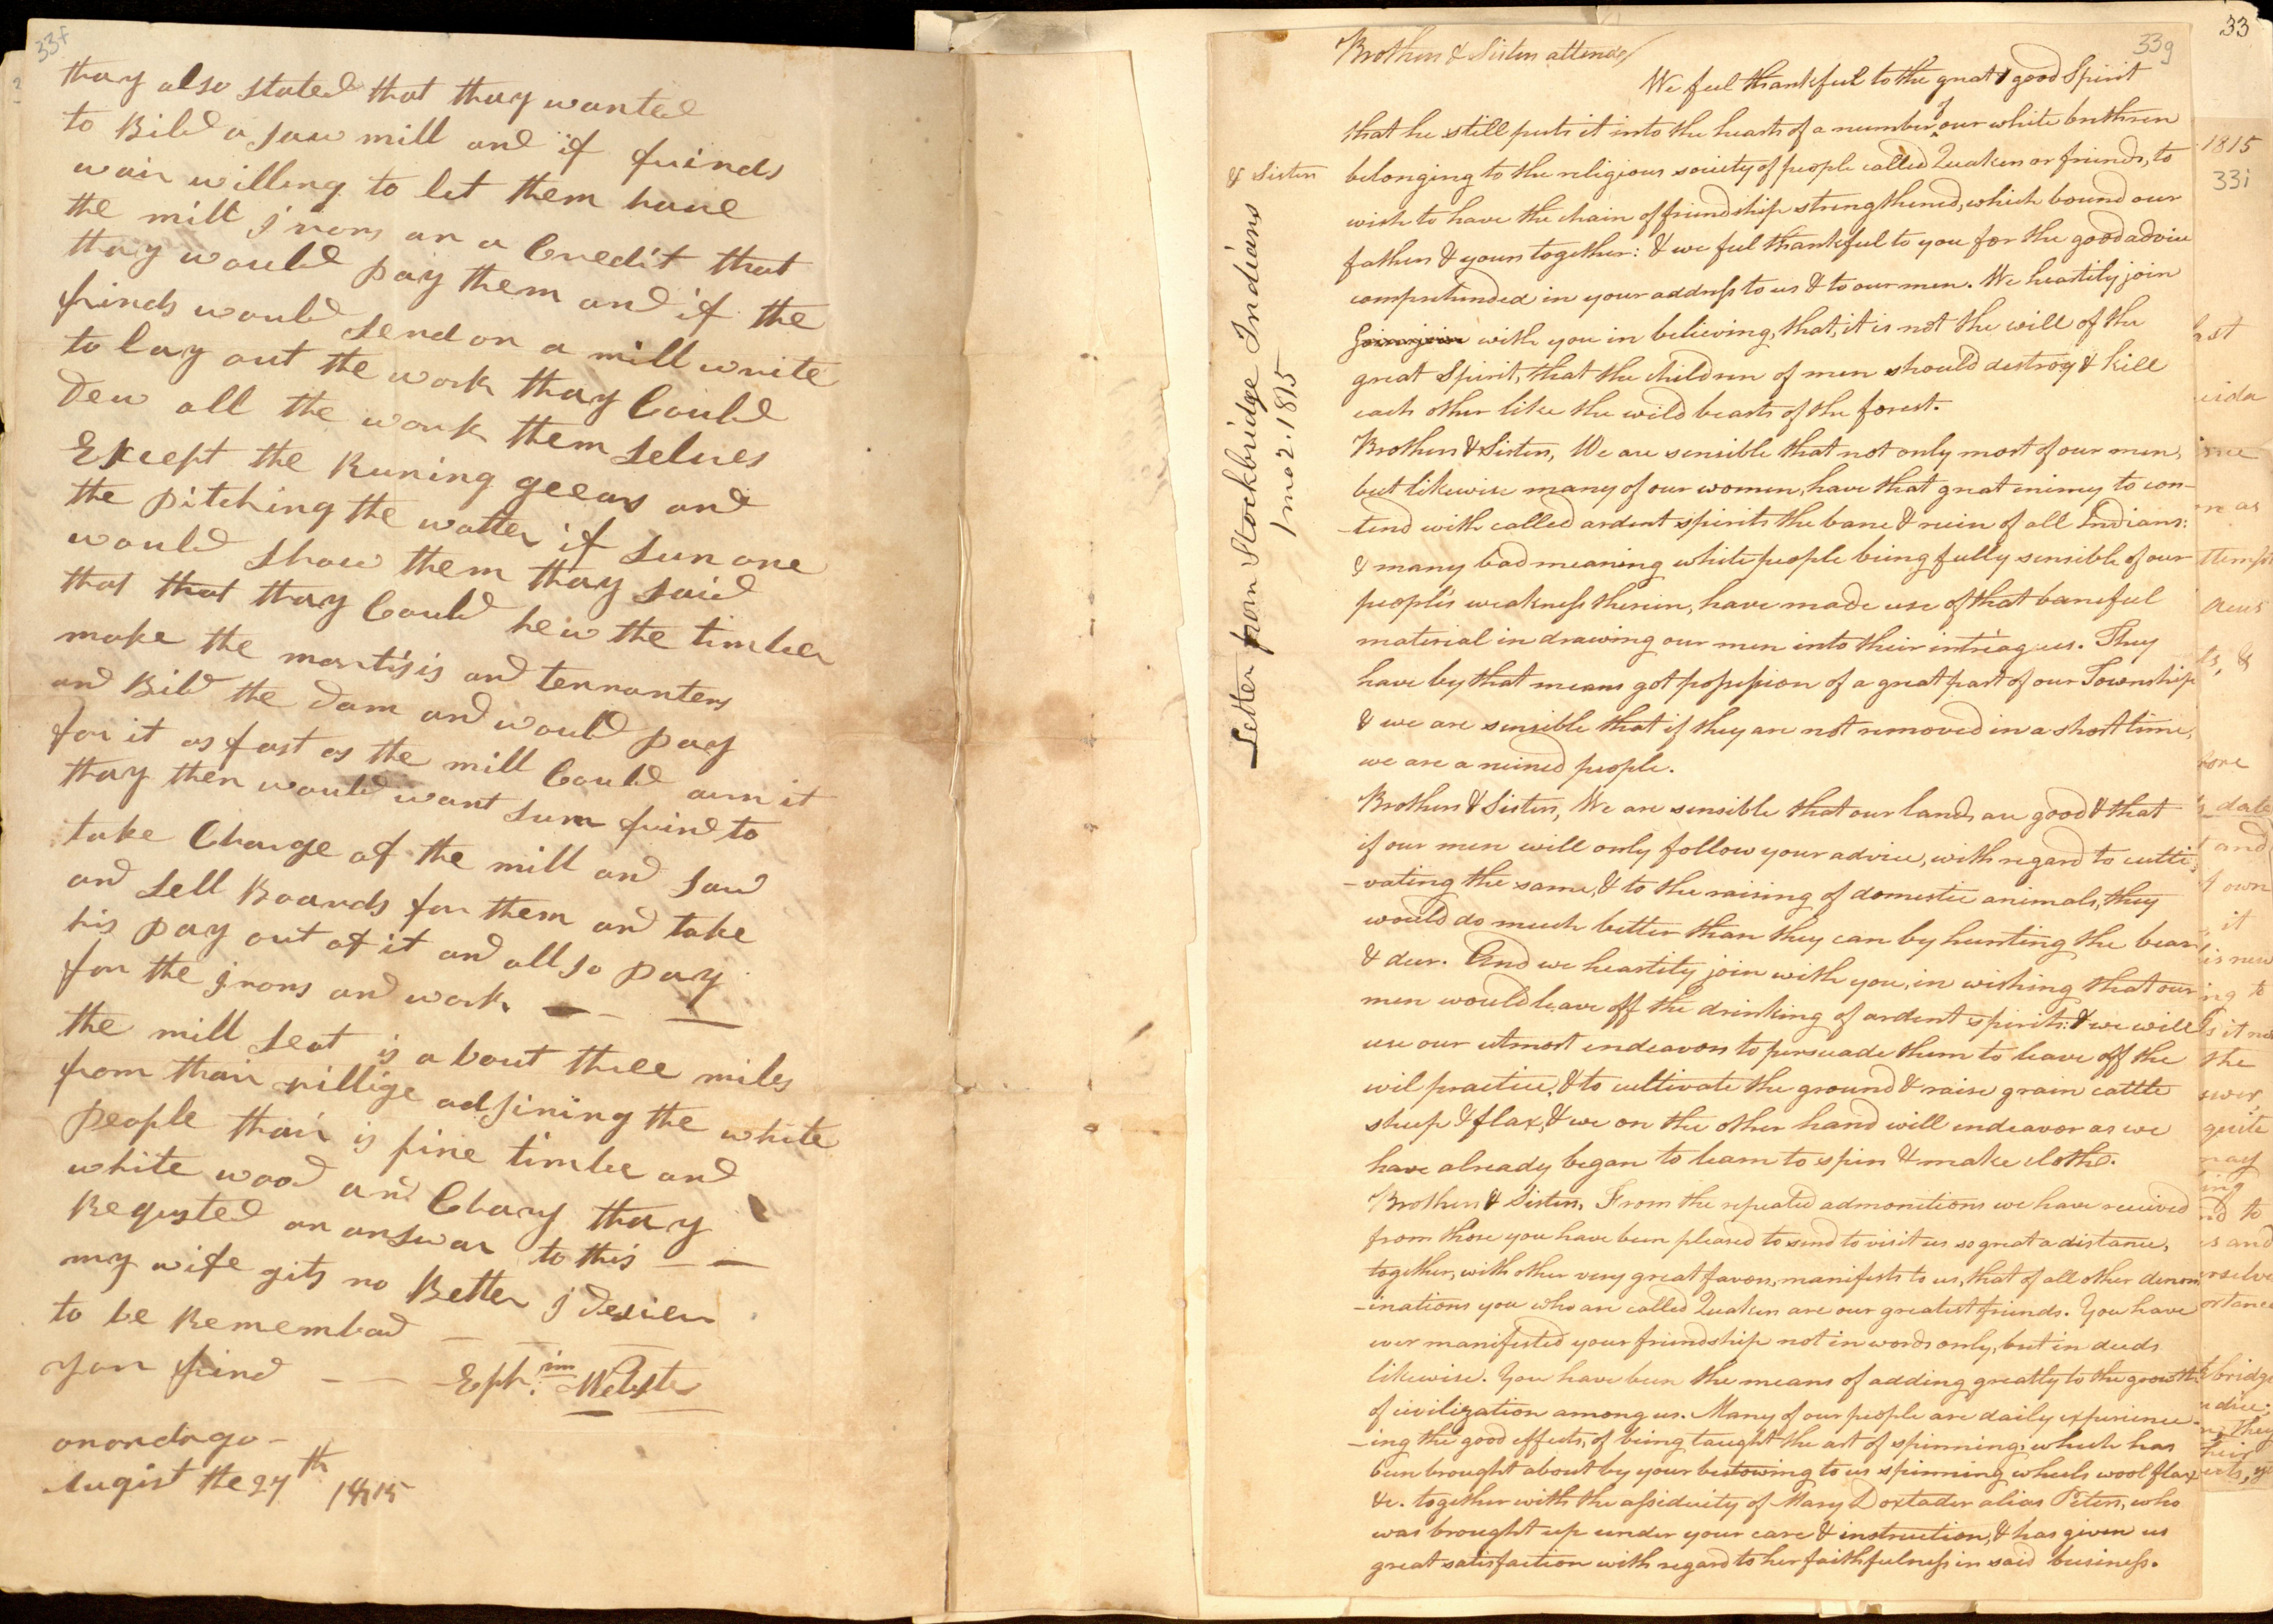 33f
thay also stated that thay wanted
to Bild a saw mill and if frinds
wair willing to let them have
the mill jrons an a Credit that
thay would pay them and if the
frinds would send on a mill write
to lay out the work thay Could
dew all the work them selves
Except the Runing geears and
the pitching the watter if sum one
would show them thay said
that that thay Could hew the timber
make the mortisis and tennanters
and Bild the dam and would pay
for it as fast as the mill Could arn it
thay then would want sum frind to
take Charge of the mill and saw
and sell Boards for them and take
his pay out of it and allso pay
for the jrons and work — — —
the mill seat is about three miles
from thair villige adjining the white
people thair is fine timber and
white wood and Chary thay
Requsted an answar to this — —
my wife gits no Better j desier
to be Remembad —
your frind — — Eph.im Webster
onondago —
Augist the 27th 1815
33
33g
Brothers & Sisters attend/
We feel thankful to the great & good Spirit
that he still puts it into the hearts of a number of our white brethren
belonging to the religious society of people called Quakers or friends, to
wish to have the chain of friendship strengthened, which bound our
fathers & yours together: & we feel thankful to you for the good advice
comprehended in your address to us & to our men. We heartily join
with you in believing, that, it is not the will of the
great Spirit, that the children of men should destroy & kill
each other like the wild beasts of the forest.
Brothers & Sisters, We are sensible that not only most of our men,
but likewise many of our women, have that great enimy to con-
-tend with called ardent spirits the bane & ruin of all Indians:
& many bad meaning white people being fully sensible of our
people's weakness therein, have made use of that baneful
material in drawing our men into their intreagues. They
have by that means got possession of a great part of our Township
& we are sensible that if they are not removed in a short time,
we are a ruined people.
Brothers & Sisters, We are sensible that our lands are good & that
if our men will only follow your advice, with regard to culti
-vating the same, & to the raising of domestic animals, they
would do much better than they can by hunting the bears
& deer. And we heartily join with you, in wishing that our
men would leave off the drinking of ardent spirits: & we will
use our utmost endeavors to persuade them to leave off the
evil practice, & to cultivate the ground & raise grain cattle
sheep & flax, & we on the other hand will endeavor as we
have already began to learn to spin & make cloths.
Brothers & Sisters, From the repeated admonitions we have received
from those you have been pleased to send to visit us so great a distance,
together, with other very great favors, manifests to us, that of all other denom
-inations you who are called Quakers are our greatest friends. You have
ever manifested your friendship not in words only, but in deeds
likewise. You have been the means of adding greatly to the growth
of civilization among us. Many of our people are daily experienc-
-ing the good effects, of being taught the art of spinning, which has
been brought about by your bestowing to us spinning wheels wool flax
&c. together with the assiduity of Mary Doxtader alias Peters, who
was brought up under your care & instruction, & has given us
great satisfaction with regard to her faithfulness in said business.
& Sisters
Letter from Stockbridge Indians
1 mo 2. 1815
1815
33i
date
and
own
it
ing to
it
the
quite
may
to
and
bridge
they